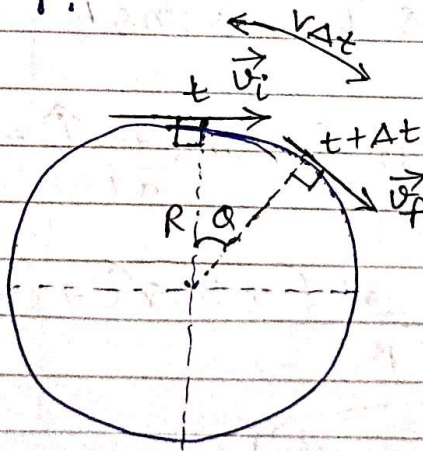 VΔt
t v⃗i
t+Δt
v⃗f
R Q